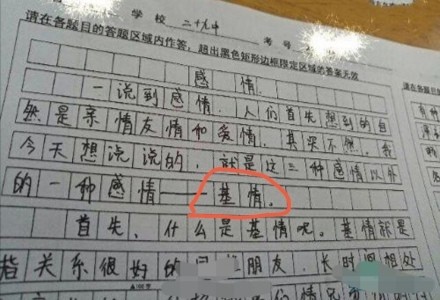 学校 二十九中
考号
请在各题目的答题区域内作答,超出黑色矩形边框限定区域的答案无效
感情
一说到感情,人们首先想到的自
然是亲情友情和爱情。其实不然。我
今天想说说的,就是这三种感情以外
的一种感情——基情。
首先,什么是基情呢。基情就是
指关系很好的朋友,长时间相处